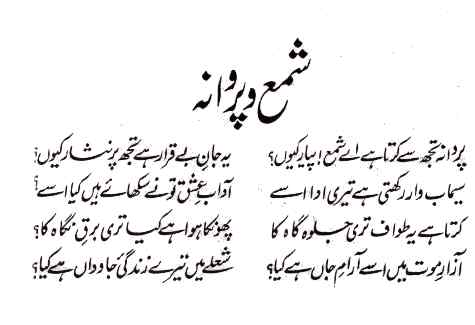 شمع و پروانہ
پروانہ تجھ سے کرتا ہے اے شمع! پیار کیوں؟ یہ جانِ بے قرار ہے تجھ پر نثار کیوں؟
سیماب وار رکھتی ہے تیری ادا اسے آدابِ عشق تو نے سکھائے ہیں کیا اسے؟
کرتا ہے یہ طواف تری جلوہ گاہ کا پھونکا ہوا ہے کیا تری برقِ نگاہ کا؟
آزارِ موت میں اسے آرامِ جاں ہے کیا؟ شعلے میں تیرے زندگیٔ جاوداں ہے کیا؟